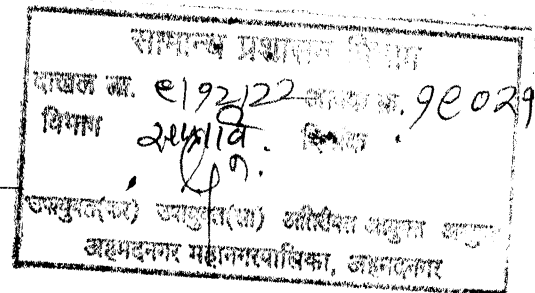 सामान्य प्रशासन विभाग
दाखल ता. ९/१२/२२ क्र. १९०२१
विभाग दिनांक
उपायुक्त(कर) उपायुक्त(सा) अतिरिक्त आयुक्त आयुक्त
अहमदनगर महानगरपालिका, अहमदनगर